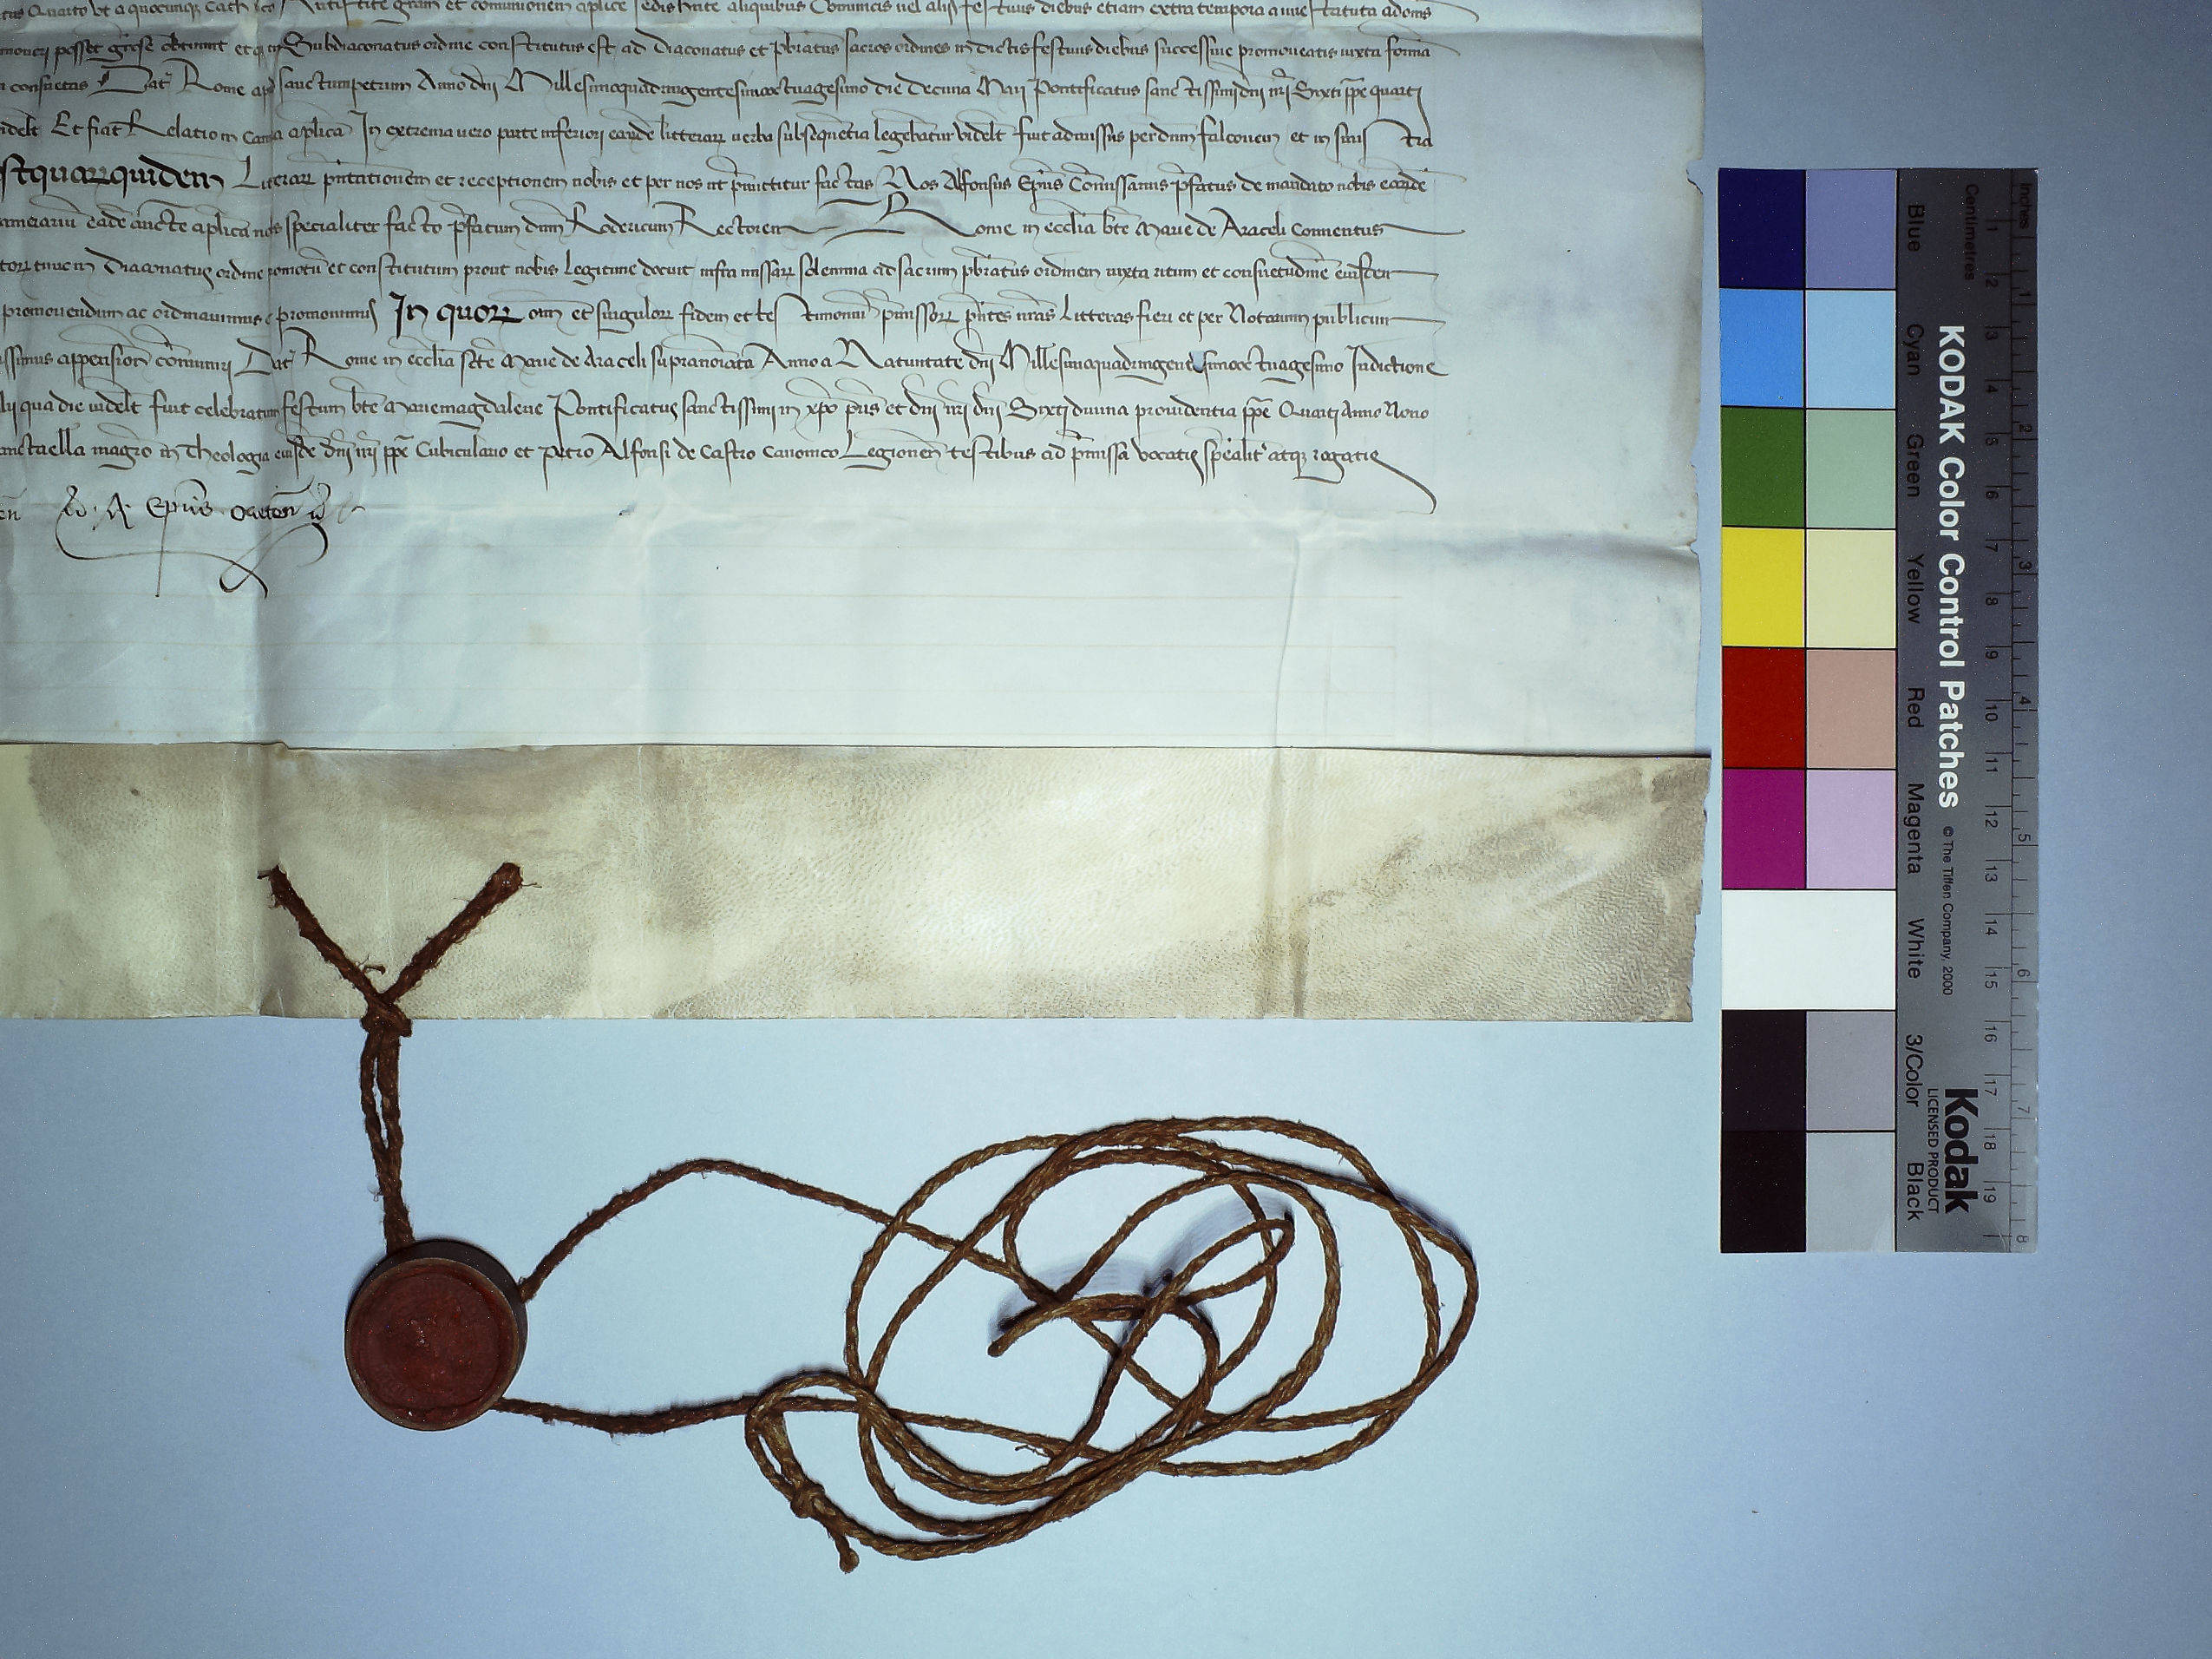 tus Quarto vt a quocunq cath ico Antistite gram et comunionem aplice sedis hnte aliquibus Dominicis uel alijs festiuis diebus etiam extra tempora a iure statuta ad oms
moueri posset grose obtinuit et q in Subdiaconatus ordine constitutus est ad Diaconatus et pbratus sacros ordines in dictis festiuis diebus successiue promoueatis iuxta forma
consuetas Dat Rome apd sanctumpetrum Anno dni Millesimoquadringentesimooctuagesimo die decima Maij Pontificatus sanctissimi dni nri Sixti ppe quarti
idelt Et fiat Relatio in Cama aplica In extrema uero parte inferiori earunde litterarr uerba subsequentia legebatur videlt fuit admissus per dnum falconem et in
stquarrquidem Literarr pntationem et receptionem nobis et per nos ut pmittitur factas Nos Alfonsus Epus Comissarius pfatus de mandato nobis
amerariu eade aucte aplica nos specialiter facto pfatum dnm Rodericum Rectorem Rome in ecclia bte Marie de Araceli Conuentus
torr tunc in Diaconatus ordine romotu et constitutum prout nobis legitime docuit infra missarr solemnia ad sacrum pbratus ordinem iuxta ritum et consuetudine eiusdem
promouendum ac ordinauimus promouimus In quorr oim et singulorr fidem et testimoniu pmissorr pntes nras Litteras fieri et per Notarium publicum
issimus appension comuniri Dat Rome in ecclia scte Marie de Araceli supranoiata Anno a Natiuitate dni Millesimoquadringentesimooctuagesimo Indictione
lij qua die videlt fuit celebratum festum bte Mariemagdalene Pontificatus sanctissimi in xpo pris et dni nri dni Sixti diuina prouidentia ppe Quarti Anno Nono
magro in Theologia eiusde dni nri ppe Cubiculario et Petro Alfonsi de Castro Canonico Legionen testibus ad pmissa vocatis spealit atq rogatis
A Epus
KODAK Color Control Patches
© The Tiffen Company, 2000
Kodak
LICENSED PRODUCT
Blue Cyan Green Yellow Red Magenta White 3/Color Black
Centimetres 1 2 3 4 5 6 7 8 9 10 11 12 13 14 15 16 17 18 19
Inches 1 2 3 4 5 6 7 8